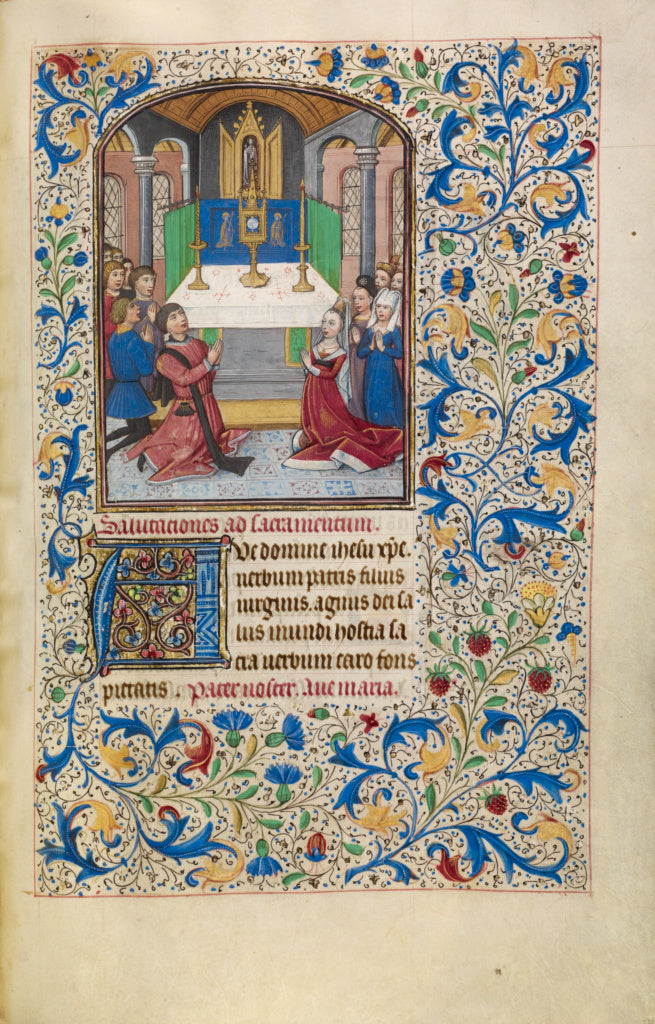 Salutaciones ad sacramentum.
AVe domine ihesu xpe.
uerbum patris filius
uirginis. agnus dei sa
lus mundi hostia sa
cra uerbum caro fons
pietatis Pater noster. Aue maria.